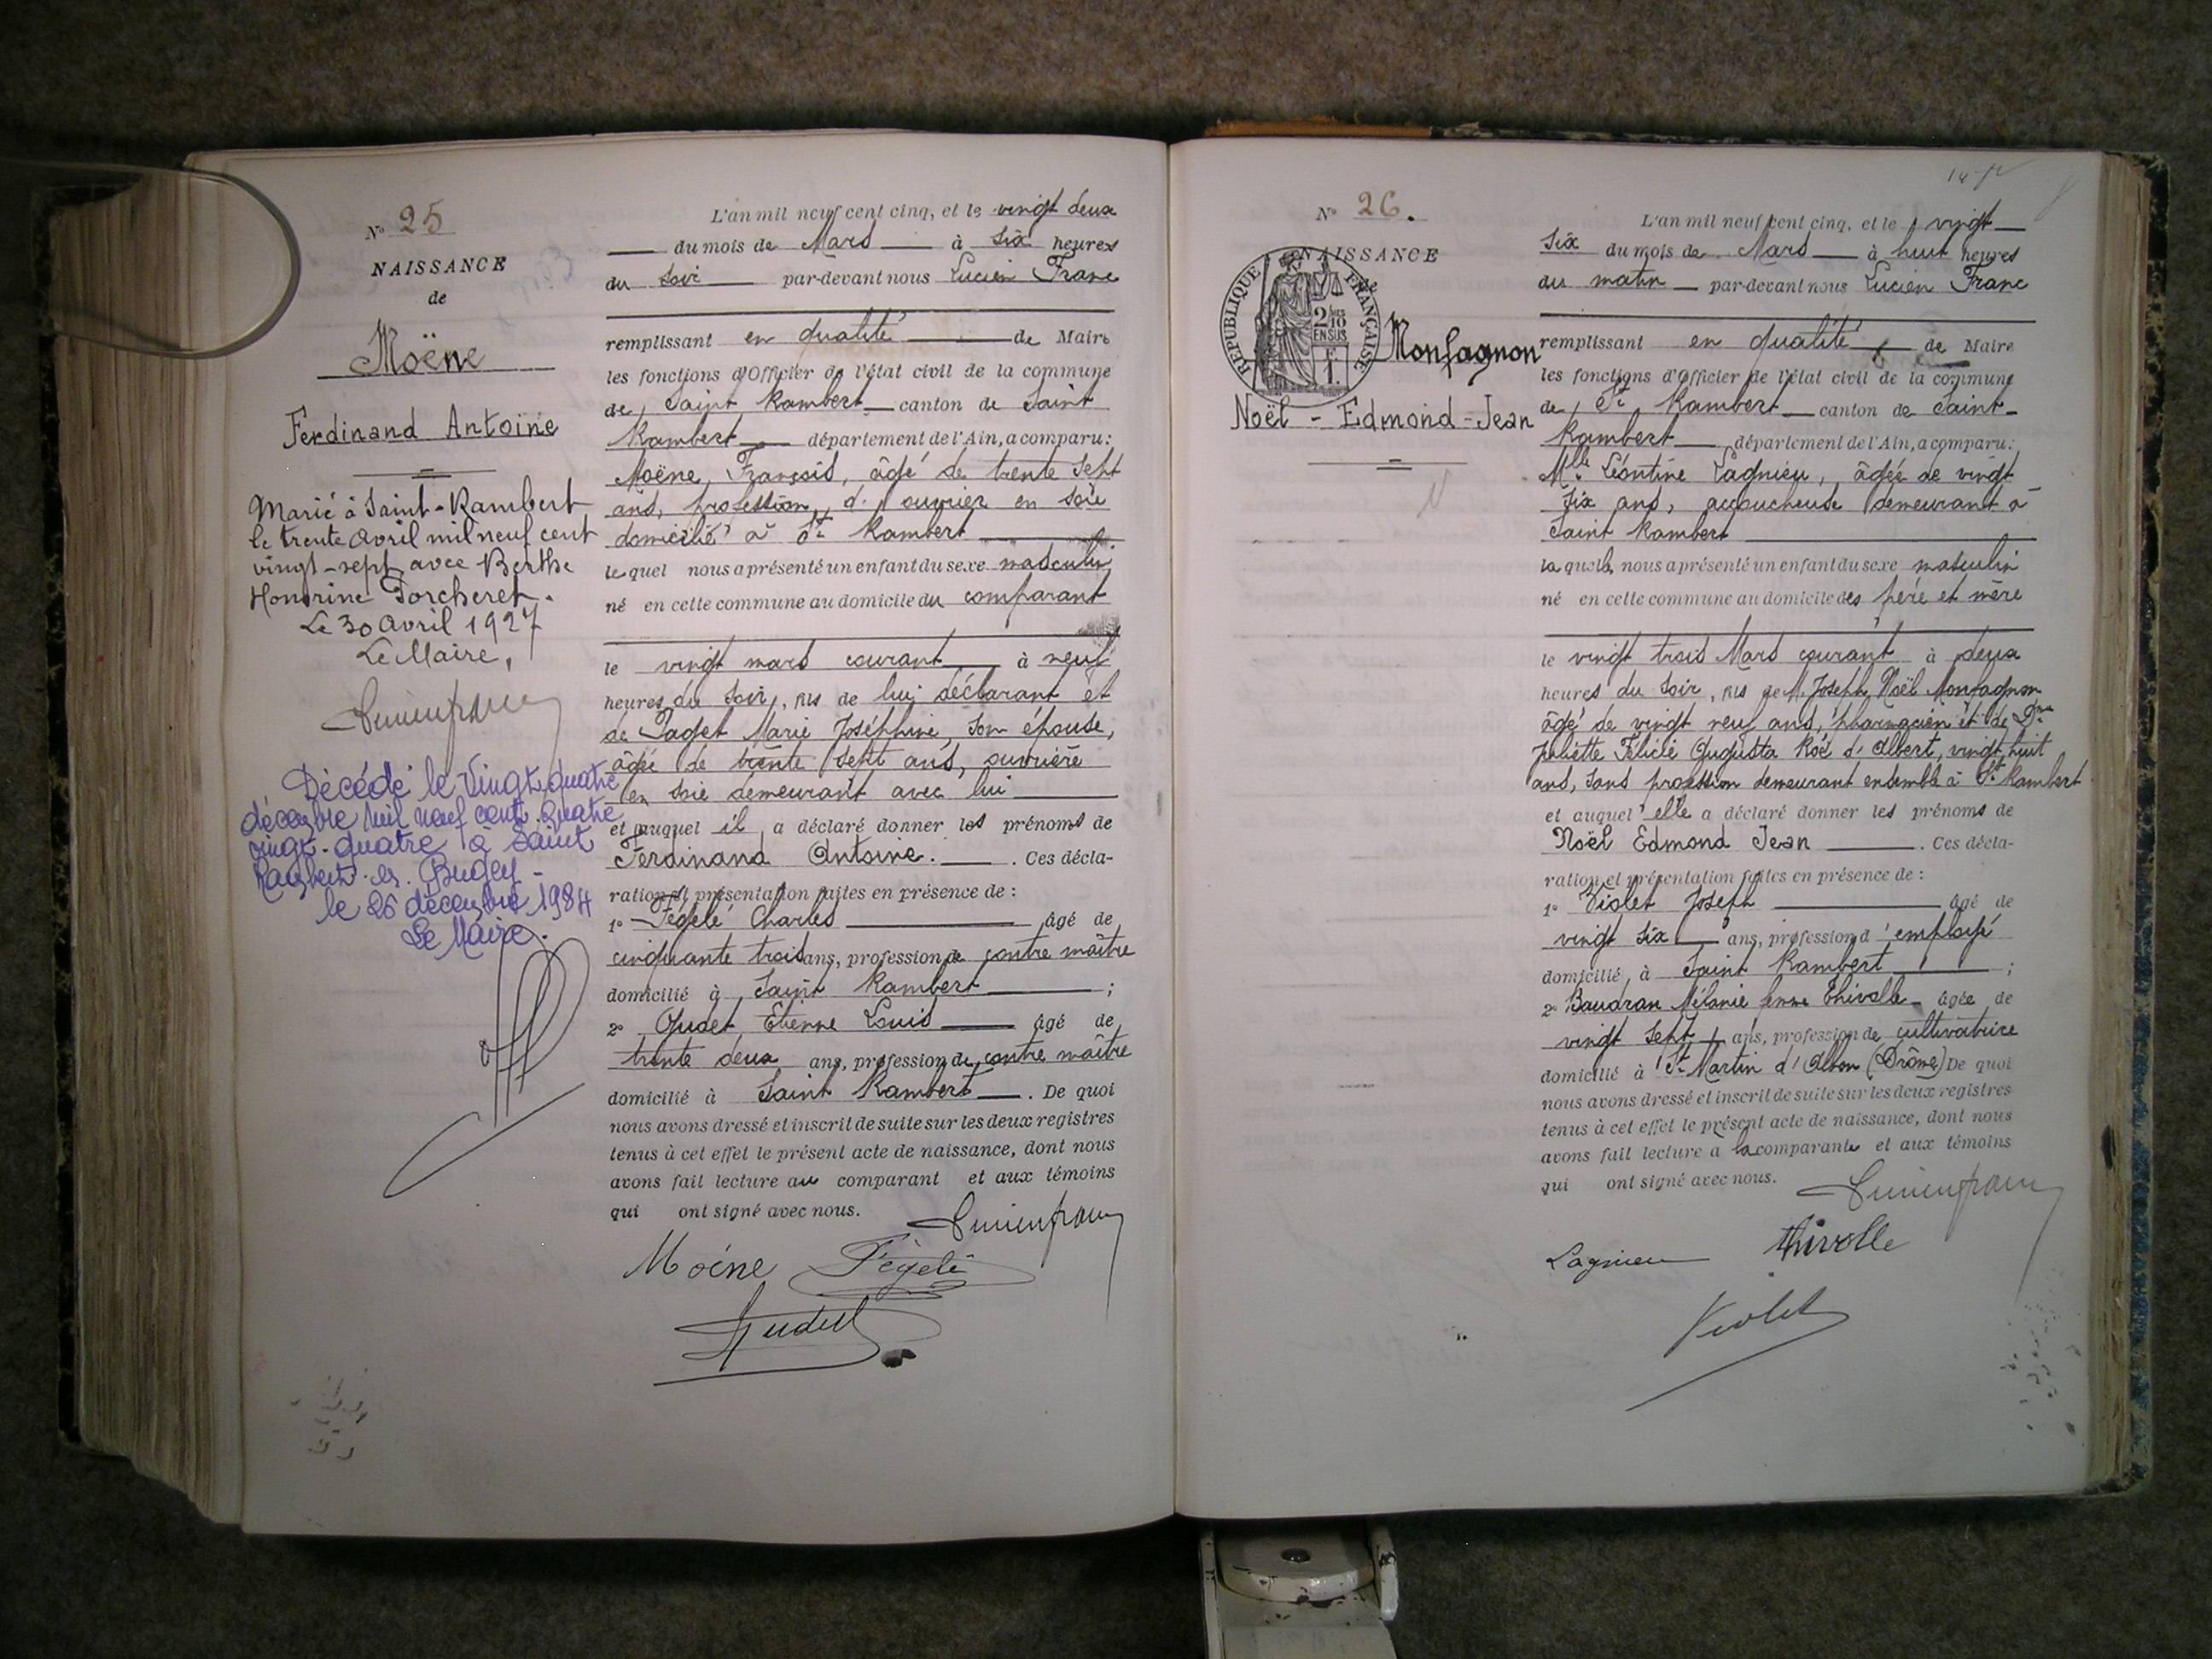 N° 25
NAISSANCE
de
Moëne
Ferdinand Antoine
Marié à Saint-Rambert
le trente avril mil neuf cent
vingt-sept avec Berthe
Honorine Porcheret.
Le 30 avril 1927
Le Maire,
Lucien Franc
Décédé le vingt quatre
décembre mil neuf cent quatre
vingt-quatre à Saint
Rambert-en-Bugey-
le 26 décembre 1984
Le Maire.
L'an mil neuf cent cinq, et le vingt deux
du mois de Mars à six heures
du soir par-devant nous Lucien Franc
remplissant en qualité de Maire
les fonctions d'Officier de l'état civil de la commune
de Saint Rambert canton de Saint
Rambert département de l'Ain, a comparu:
Moëne, François, âgé de trente sept
ans, profession d'ouvrier en soie
domicilié à St Rambert
lequel nous a présenté un enfant du sexe masculin
né en cette commune au domicile du comparant
le vingt mars courant à neuf
heures du soir, fils de lui déclarant et
de Paget Marie Joséphine, son épouse,
âgée de trente sept ans, ouvrière
en soie demeurant avec lui
et auquel il a déclaré donner les prénoms de
Ferdinand Antoine. . Ces décla-
ration et présentation faites en présence de :
1° Fégelé Charles âgé de
cinquante trois ans, profession de contre maître
domicilié à Saint Rambert ;
2° Oudet Etienne Louis âgé de
trente deux ans, profession de contre maître
domicilié à Saint Rambert . De quoi
nous avons dressé et inscrit de suite sur les deux registres
tenus à cet effet le présent acte de naissance, dont nous
avons fait lecture au comparant et aux témoins
qui ont signé avec nous.
Lucien Franc
Moëne Fégelé
Oudet
N° 26.
NAISSANCE
de
RÉPUBLIQUE FRANÇAISE
2/10
EN SUS
Monfagnon
Noël - Edmond - Jean
L'an mil neuf cent cinq, et le vingt
six du mois de Mars à huit heures
du matin par-devant nous Lucien Franc
remplissant en qualité de Maire
les fonctions d'Officier de l'état civil de la commune
de St Rambert canton de Saint-
Rambert département de l'Ain, a comparu:
Mlle Léontine Lagnieu, âgée de vingt
six ans, accoucheuse demeurant à
Saint Rambert
laquelle nous a présenté un enfant du sexe masculin
né en cette commune au domicile des père et mère
le vingt trois Mars courant à deux
heures du soir, fils de M. Joseph Noël Monfagnon
âgé de vingt neuf ans, pharmacien et de Dme
Juliette Félicie Augusta Roé d'Albert, vingt huit
ans, sans profession demeurant ensemble à St Rambert
et auquel elle a déclaré donner les prénoms de
Noël Edmond Jean . Ces décla-
ration et présentation faites en présence de :
1° Violet Joseph âgé de
vingt six ans, profession d'employé
domicilié à Saint Rambert ;
2° Baudran Mélanie femme Thivolle âgée de
vingt sept ans, profession de cultivatrice
domicilié à St Martin d'Albon (Drôme) De quoi
nous avons dressé et inscrit de suite sur les deux registres
tenus à cet effet le présent acte de naissance, dont nous
avons fait lecture à la comparante et aux témoins
qui ont signé avec nous.
Lucien Franc
Lagnieu Thivolle
Violet